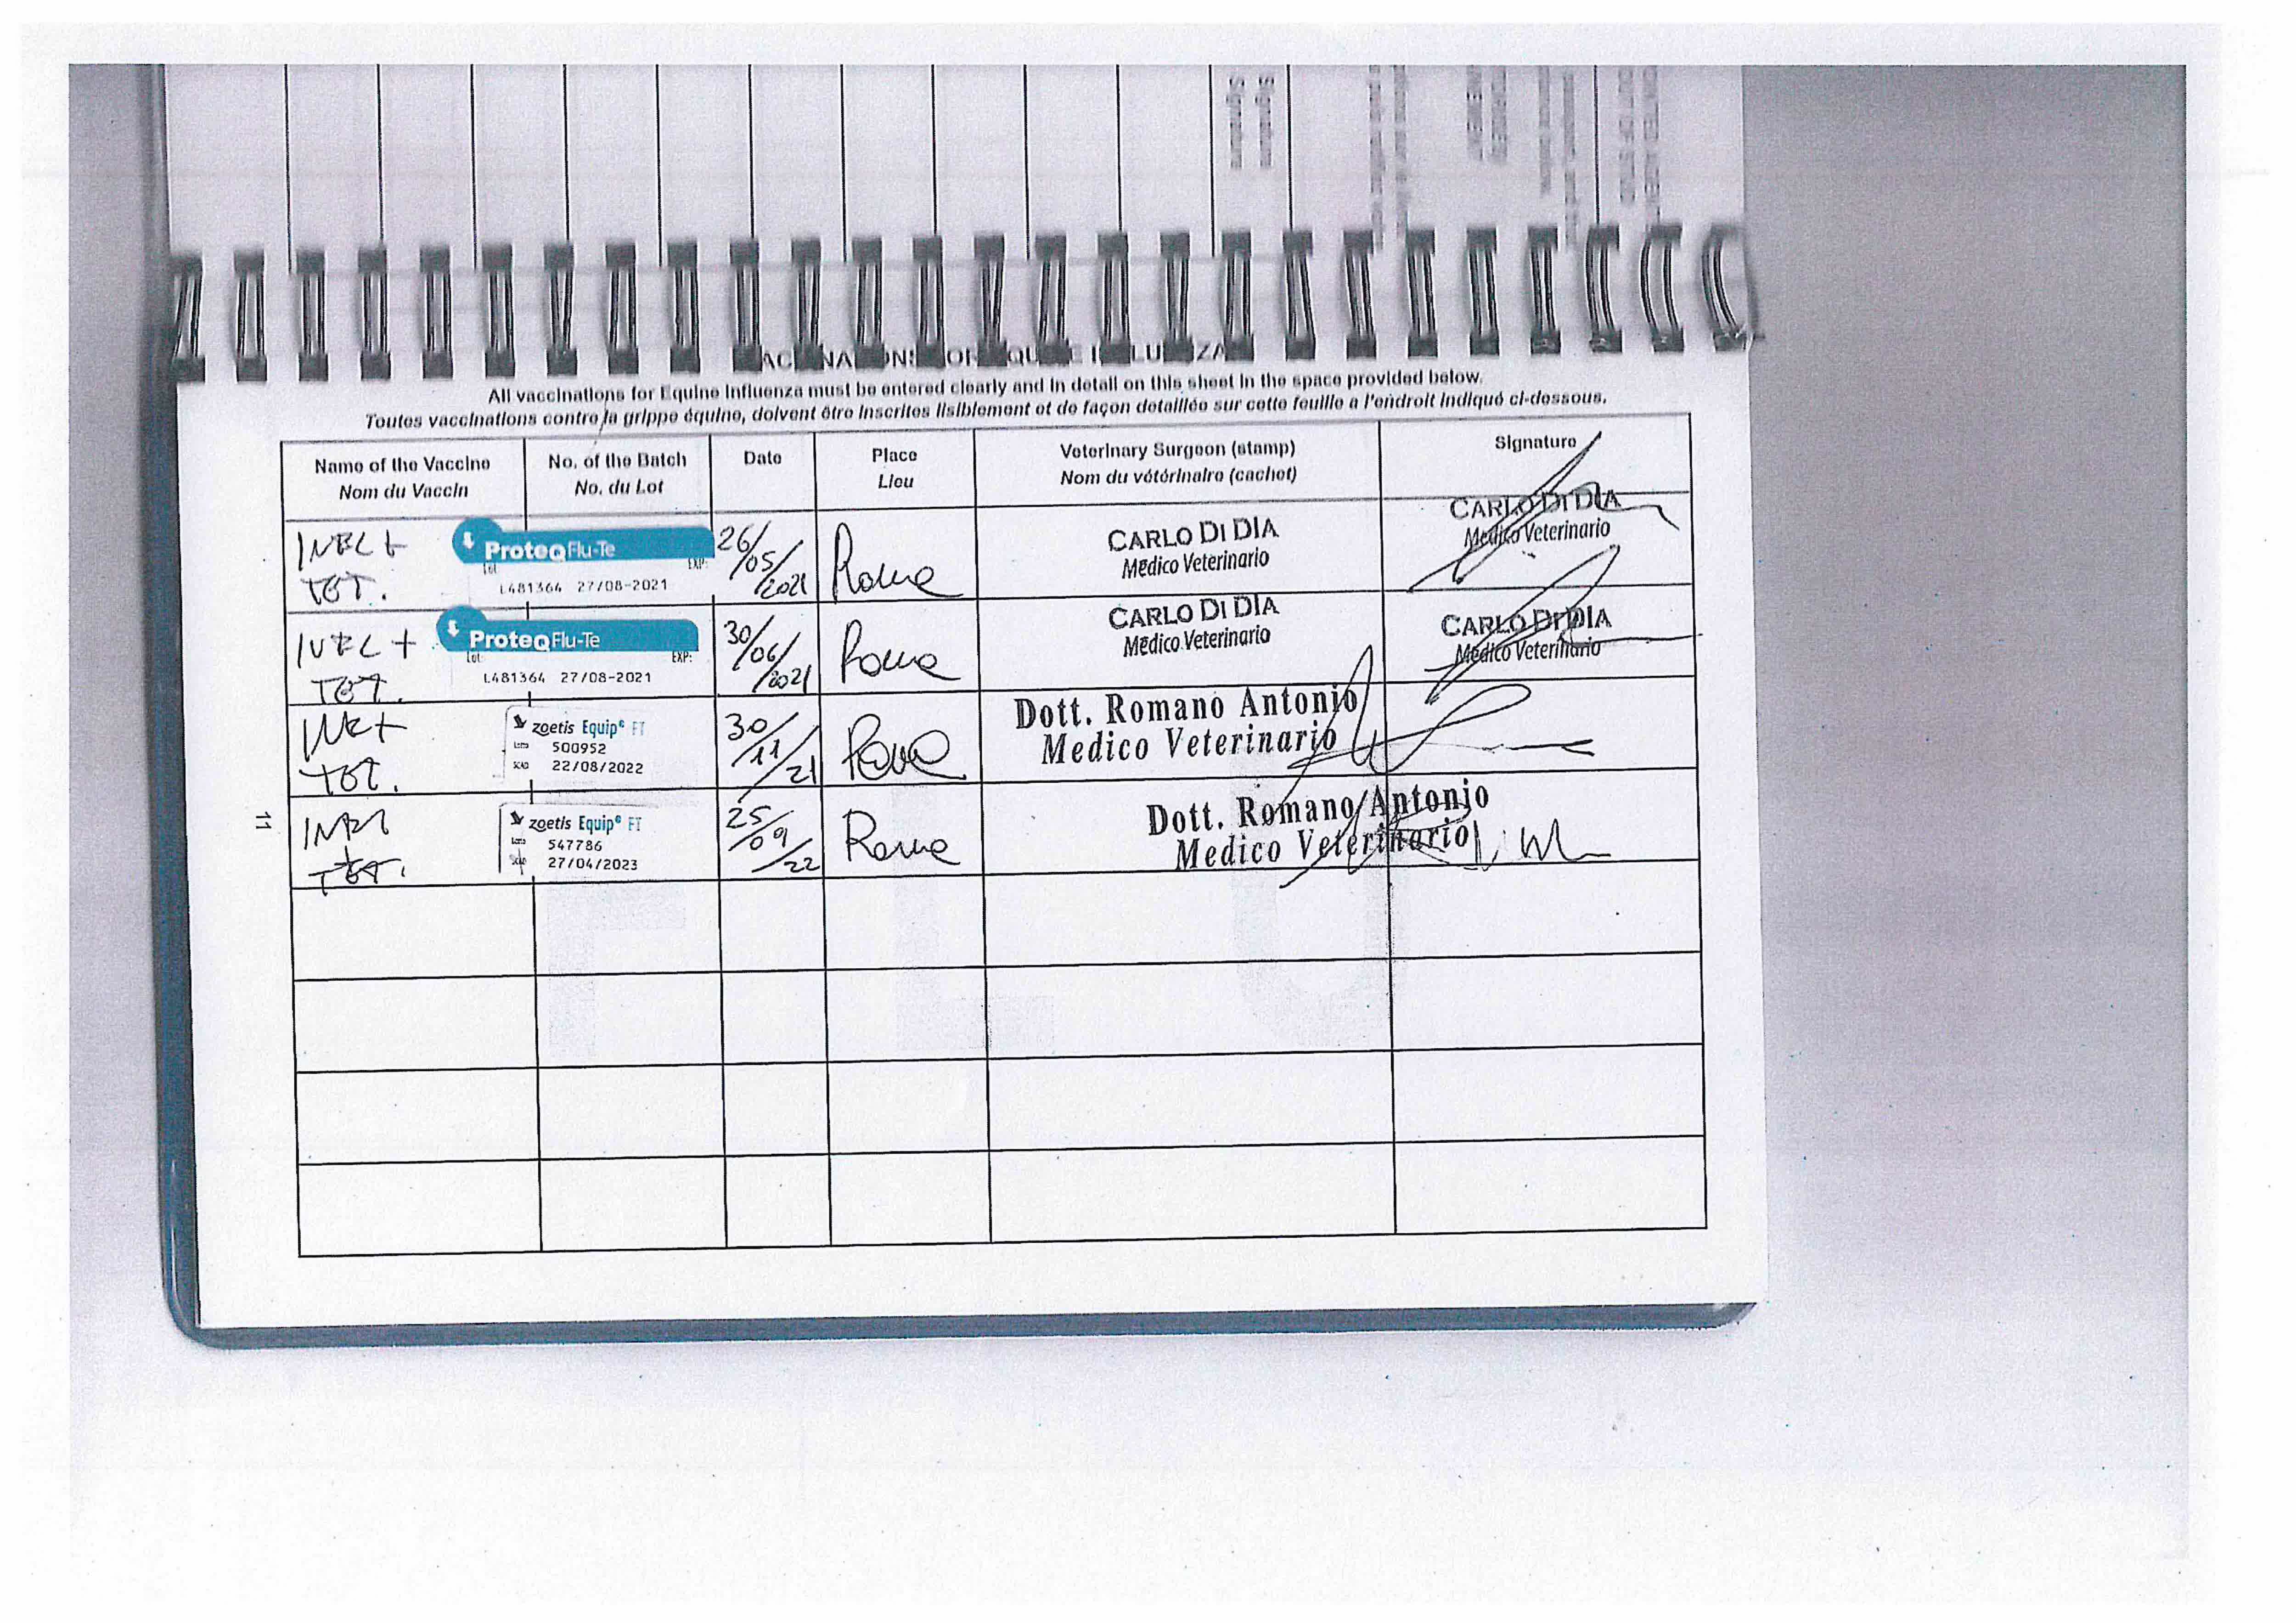 All vaccinations for Equine Influenza must be entered clearly and in detail on this sheet in the space provided below.
Toutes vaccinations contre la grippe équine, doivent être inscrites lisiblement et de façon detaillée sur cette feuille a l'endroit indiqué ci-dessous.
Name of the Vaccine
Nom du Vaccin
No. of the Batch
No. du Lot
Date
Place
Lieu
Veterinary Surgeon (stamp)
Nom du vétérinaire (cachet)
Signature
TET.
ProteqFlu-Te
Lot: EXP:
L481364 27/08-2021
26/05/2021
Roma
CARLO DI DIA
Medico Veterinario
CARLO DI DIA
Medico Veterinario
TET.
ProteqFlu-Te
Lot: EXP:
L481364 27/08-2021
30/06/2021
Roma
CARLO DI DIA
Medico Veterinario
CARLO DI DIA
Medico Veterinario
TET.
zoetis Equip® FT
Lotto 500952
SCAD 22/08/2022
30/11/21
Roma
Dott. Romano Antonio
Medico Veterinario
TET.
zoetis Equip® FT
Lotto 547786
SCAD 27/04/2023
25/09/22
Roma
Dott. Romano Antonio
Medico Veterinario
11
Signature
Signature